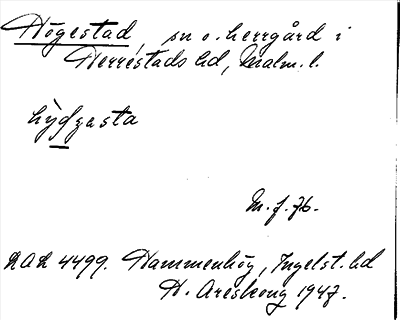 Högestad, sn o. herrgård i
Herrestads hd, Malm. l.
hỳdzesta
M. f. 76.
DAL 4499. Hammenhög, Ingelst. hd
H. Areskoug 1947.